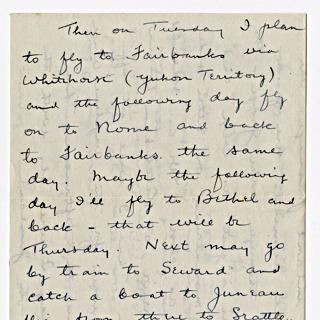 Then on Tuesday I plan
to fly to Fairbanks via
Whitehorse (Yukon Territory)
and the following day fly
on to Nome and back
to Fairbanks the same
day. Maybe the following
day I'll fly to Bethel and
back - that will be
Thursday. Next may go
by train to Seward and
catch a boat to Juneau
from there to Seattle.